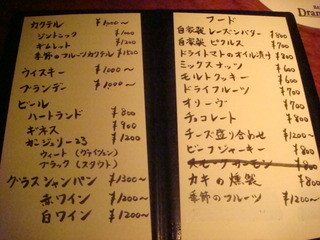 カクテル ¥1000〜
ジントニック ¥1000
ギムレット ¥1200
季節のフルーツカクテル ¥1500
ウイスキー ¥1000〜
ブランデー ¥1000〜
ビール
ハートランド ¥800
ギネス ¥900
¥1200
グラスシャンパン ¥1300〜
赤ワイン ¥1200〜
白ワイン ¥1200〜
フード
自家製 レーズンバター ¥800
自家製 ピクルス ¥700
ドライトマトのオイル漬け ¥800
ミックスナッツ ¥600
モルトクッキー ¥600
ドライフルーツ ¥700
オリーヴ ¥700
チョコレート ¥800
チーズ盛り合わせ ¥1200〜
ビーフジャーキー ¥800
スモークサーモン ¥800
カキの燻製 ¥800
季節のフルーツ ¥1200〜
Dram